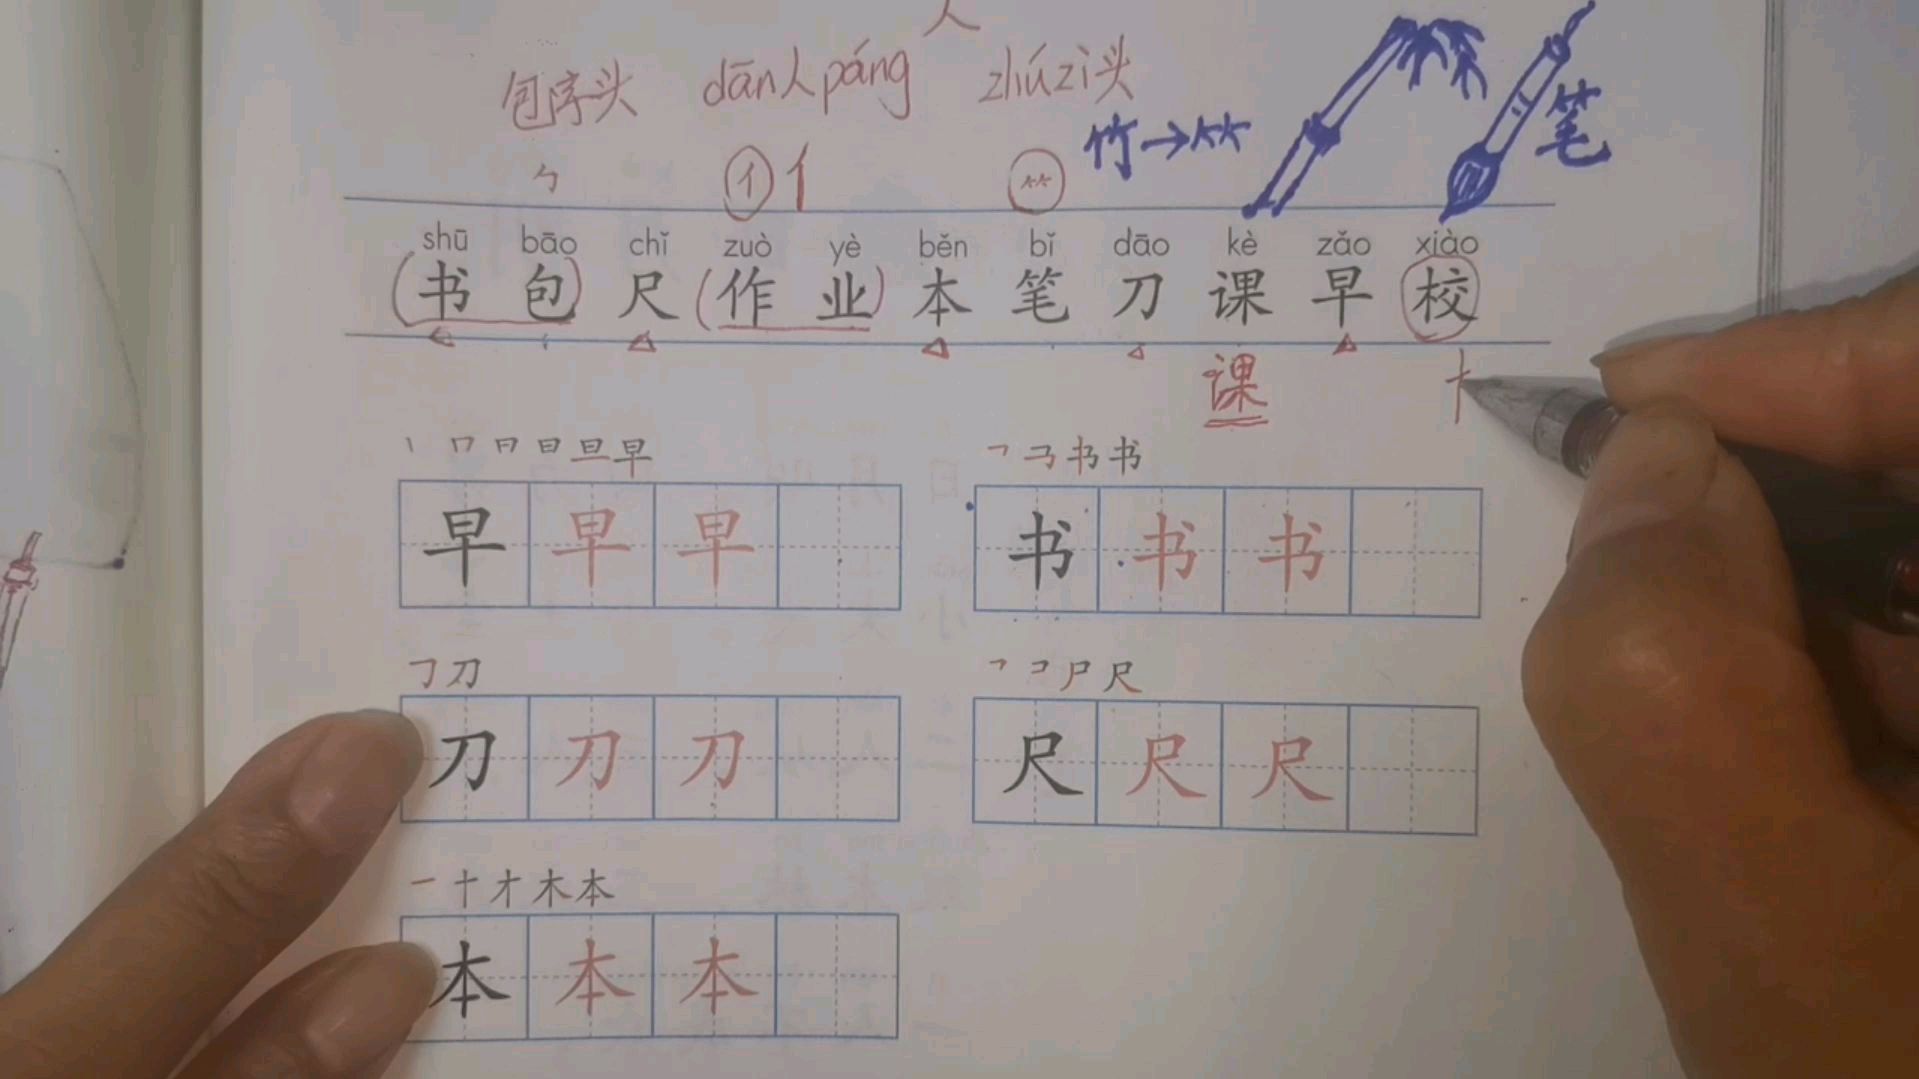 人
包字头 dān人páng zhúzì头
竹→⺮ 笔
勹 亻 亻 ⺮
shū bāo chǐ zuò yè běn bǐ dāo kè zǎo xiào
(书 包) 尺 (作 业) 本 笔 刀 课 早 校
课 十
丨 口 日 日 旦 早
早 早 早
㇕ 书 书
书 书 书
㇆ 刀
刀 刀 刀
㇕ コ 尸 尺
尺 尺 尺
一 十 才 木 本
本 本 本